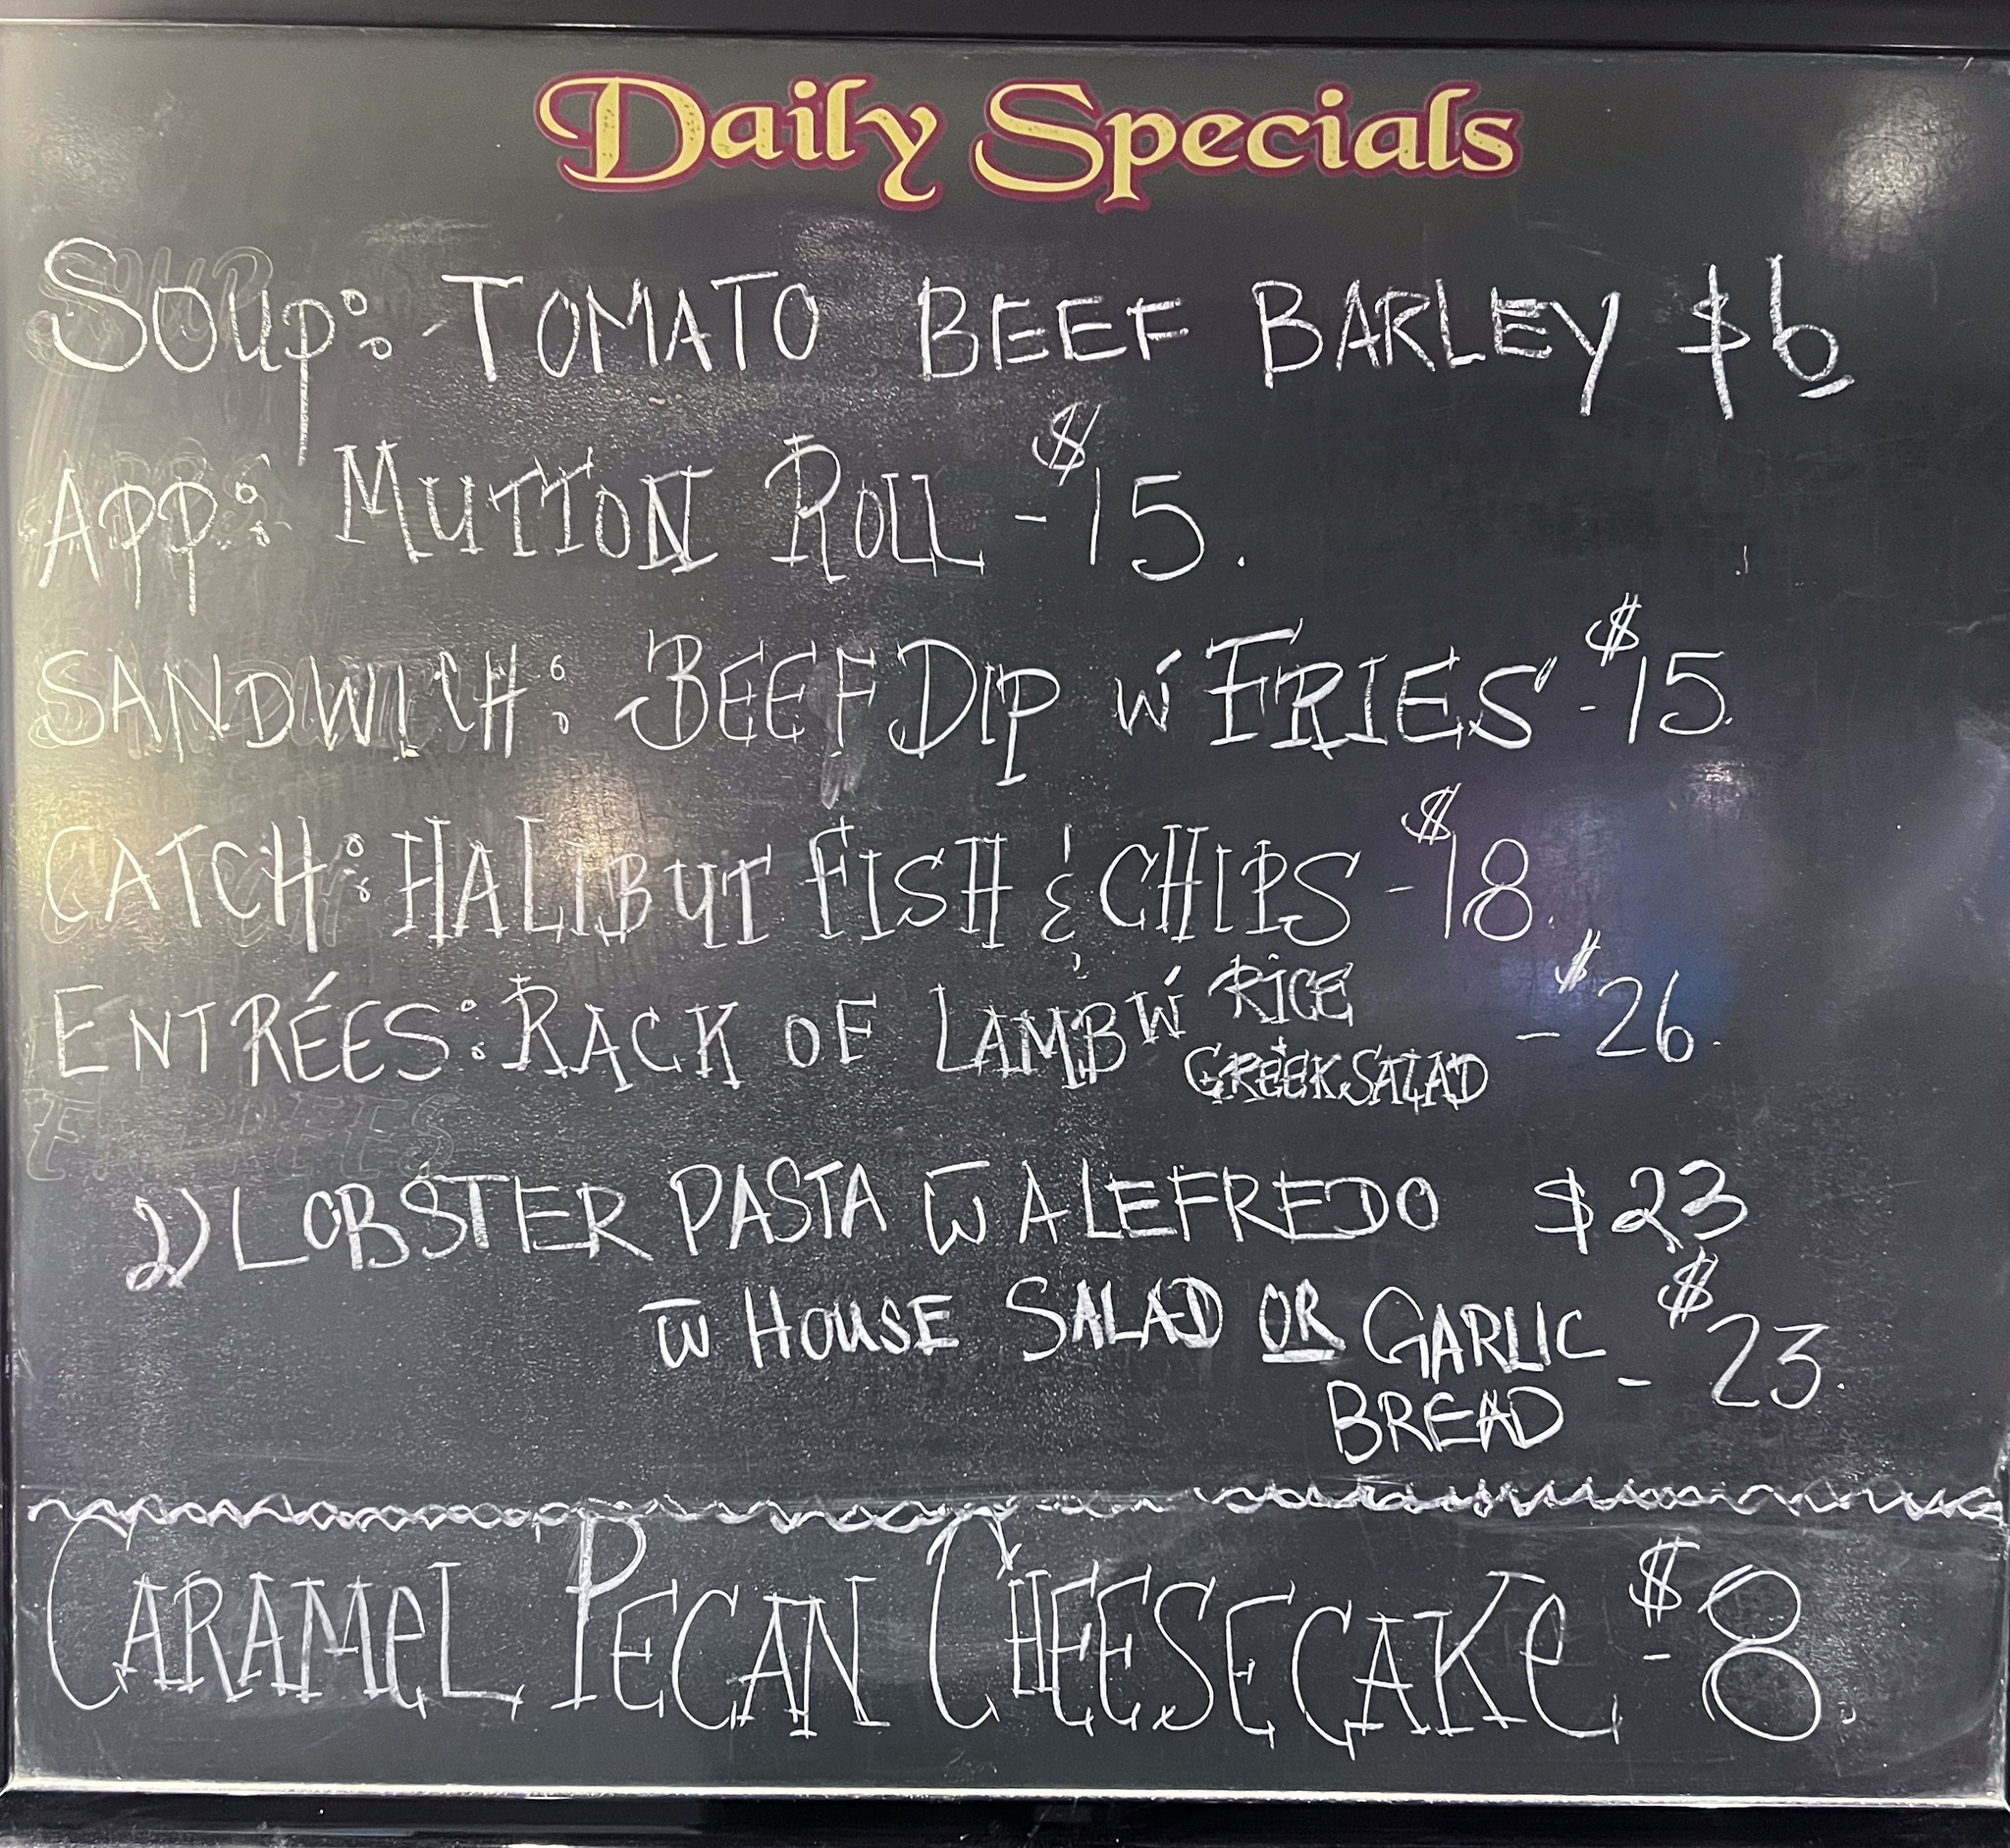 Daily Specials
Soup: TOMATO BEEF BARLEY $6
APP: MUTTON ROLL - $15.
SANDWICH: BEEF DIP w/ FRIES - $15.
CATCH: HALIBUT FISH & CHIPS - $18.
ENTRÉES: RACK OF LAMB w/ RICE + GREEK SALAD - $26.
2) LOBSTER PASTA w̄ ALEFREDO $23
w̄ HOUSE SALAD OR GARLIC BREAD - $23.
CARAMEL PECAN CHEESECAKE - $8.